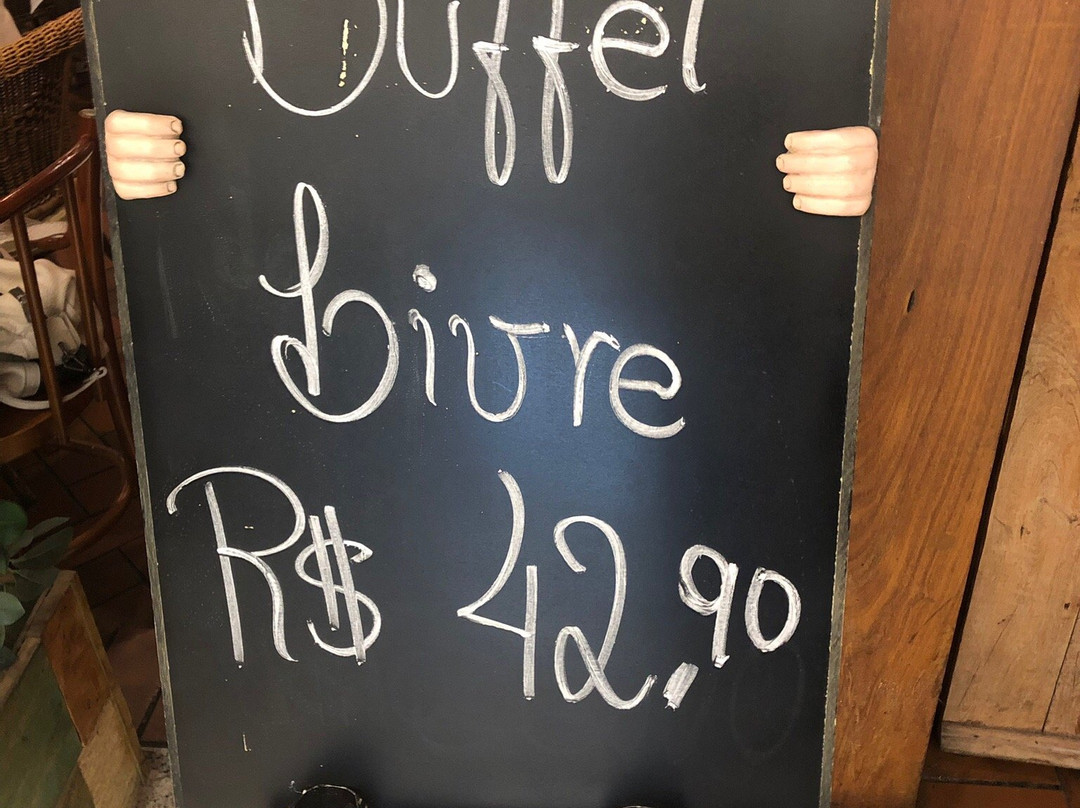 Buffet
Livre
R$ 42,90